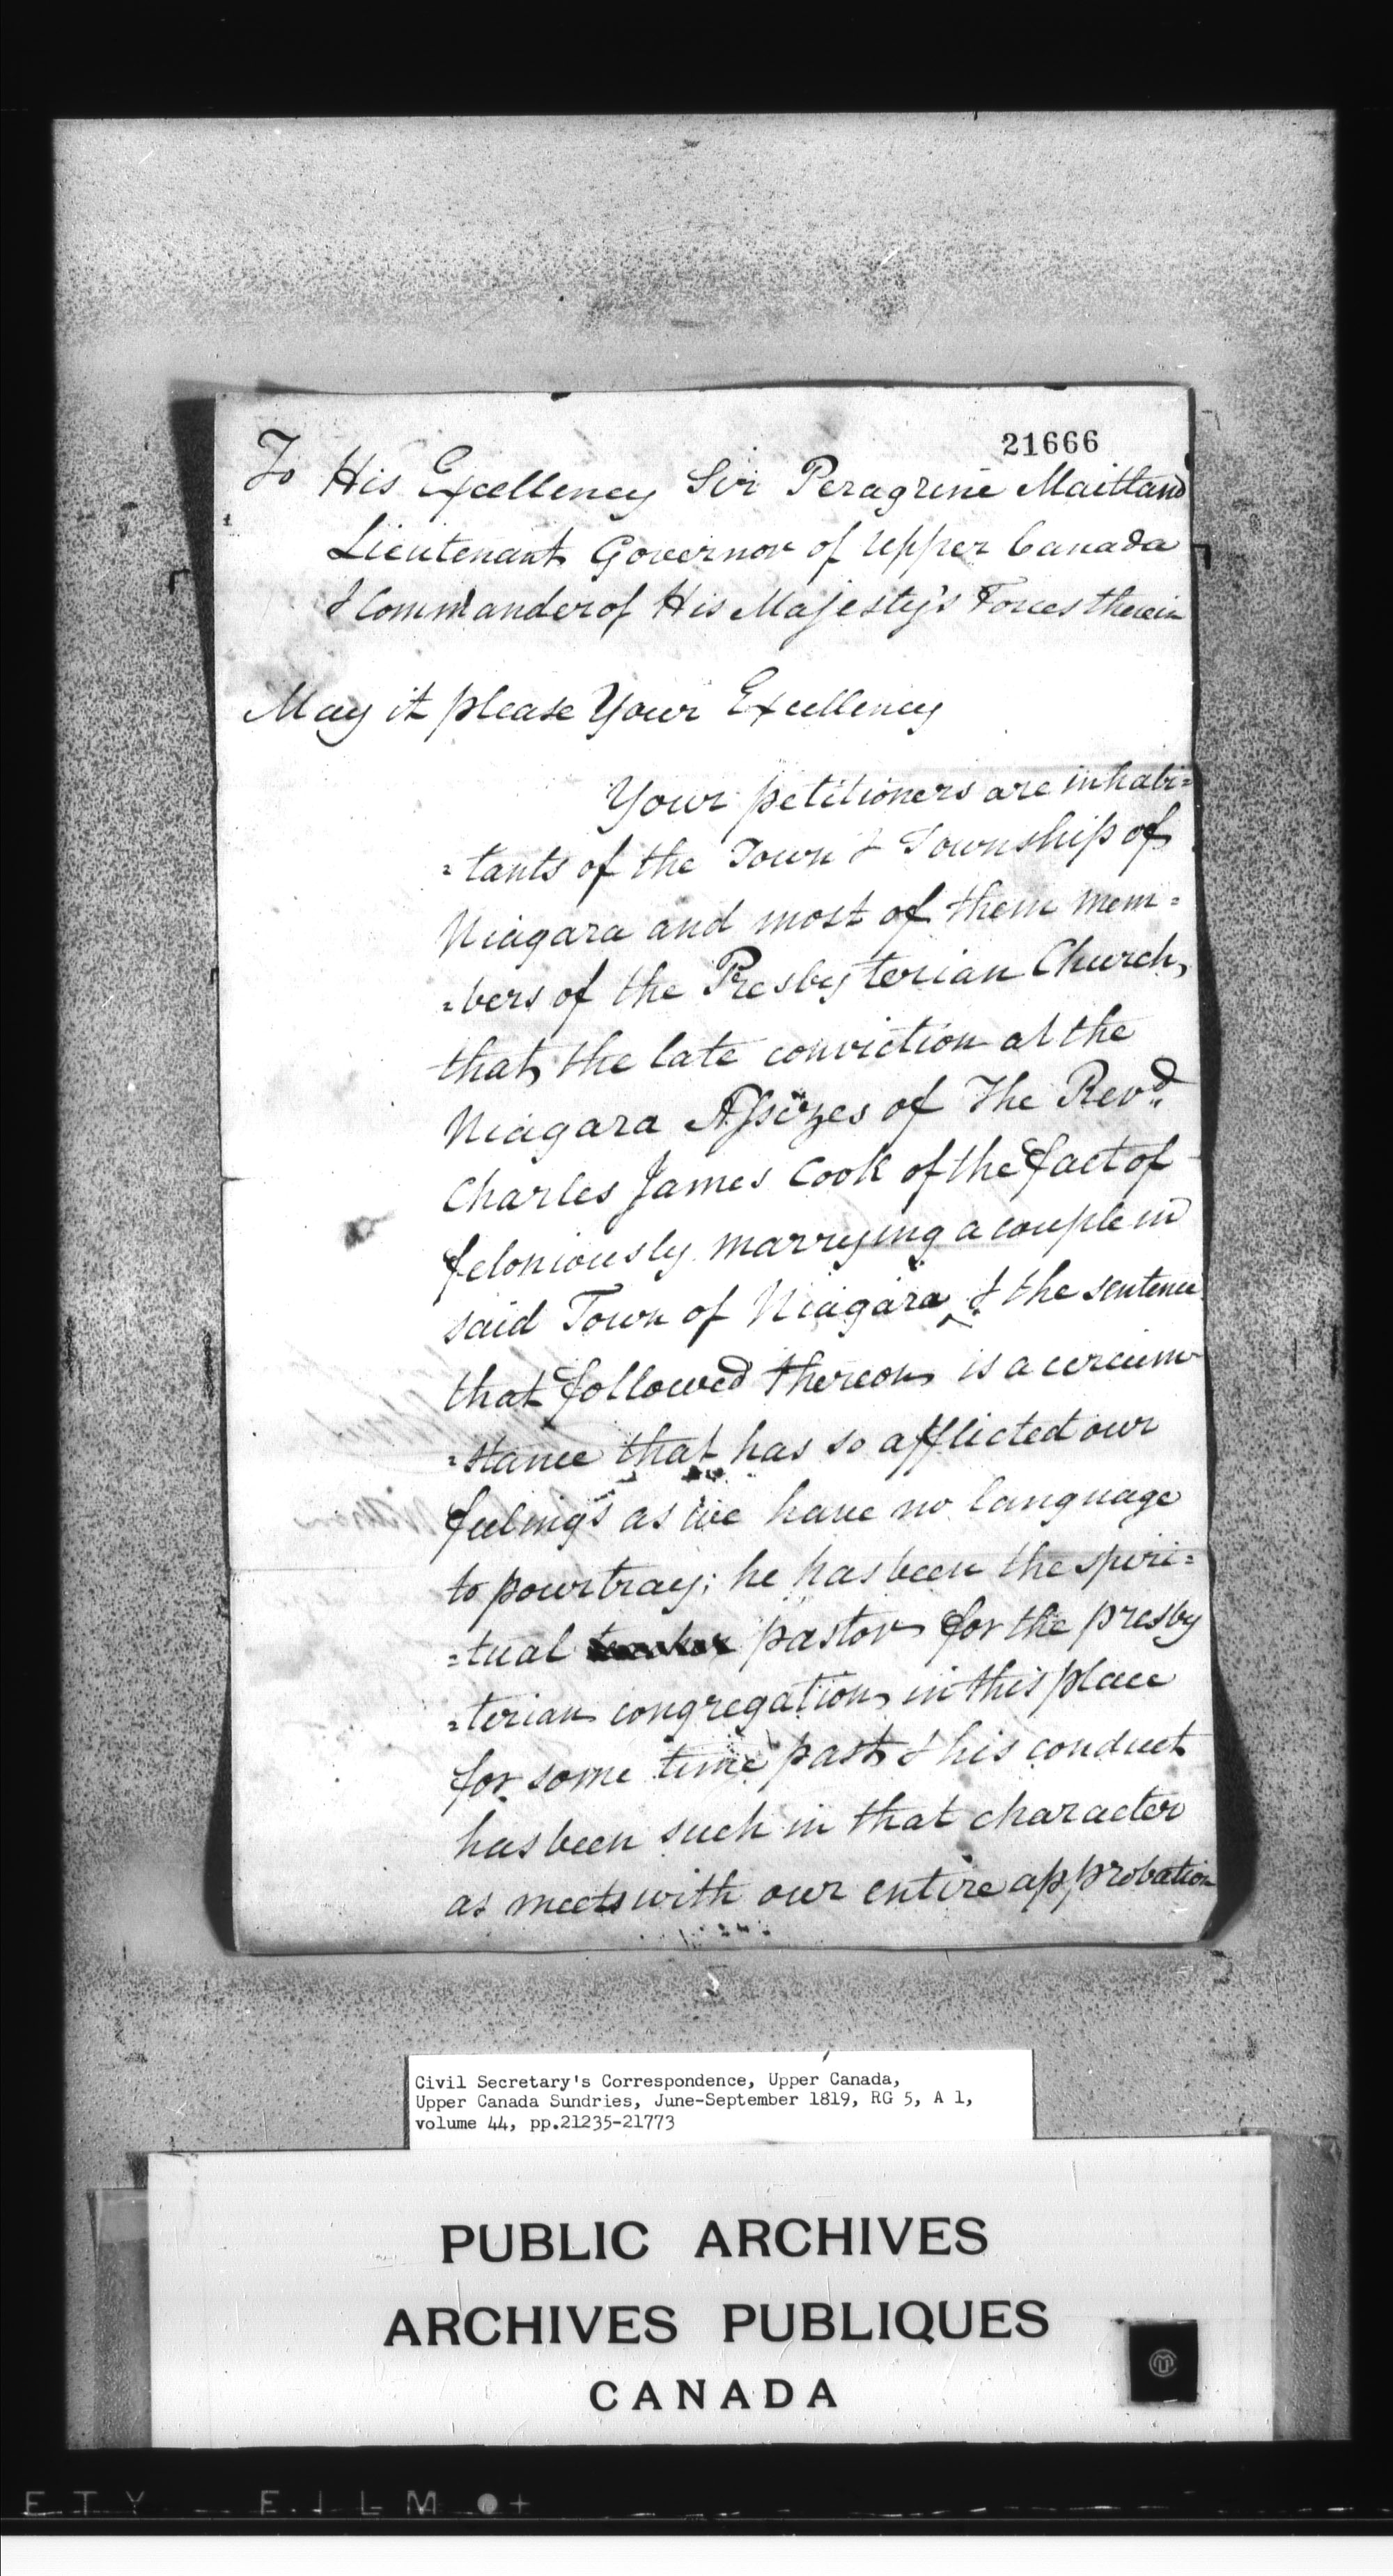 21666
To His Excellency Sir Peragrine Maitland
Lieutenant Governor of Upper Canada
& Commander of His Majesty's Forces therein
May it please Your Excellency
Your petitioners are inhabi=
=tants of the Town & Township of
Niagara and most of them mem=
=bers of the Presbyterian Church,
that the late conviction at the
Niagara Assizes of The Revd.
Charles James Cook of the fact of
feloniously marrying a couple in
said Town of Niagara & the sentence
that followed thereon is a circum
=stance that has so afflicted our
feelings as we have no language
to pourtray; he has been the spiri=
=tual pastor for the presby
=terian congregation in this place
for some time past & his conduct
has been such in that character
as meets with our entire approbation
Civil Secretary's Correspondence, Upper Canada,
Upper Canada Sundries, June-September 1819, RG 5, A 1,
volume 44, pp.21235-21773
PUBLIC ARCHIVES
ARCHIVES PUBLIQUES
CANADA
E T Y F I L M +